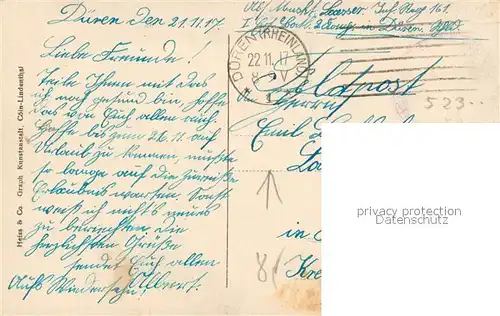 Düren den 21.11.17.
Liebe Freunde!
Teile Ihnen mit das
ich noch gesund bin hoffe
das von Euch allen auch.
Hoffe bis zum 26.11 auf
Urlaub zu kommen, mußte
so lange auf die
Erlaubnis warten. Sonst
weiß ich nichts neues
zu berichten. Die
herzlichsten Grüße
sendet Euch allen
Aufs Wiedersehn! Albert.
Heiss & Co Graph Kunstanstalt, Cöln-Lindenthal
Abs. Inf. Reg 161.
in Düren,
DÜREN (RHEINLAND)
22.11.17
Feldpost
Herrn
Emil
in
Kre
8(
523
privacy protection
Datenschutz